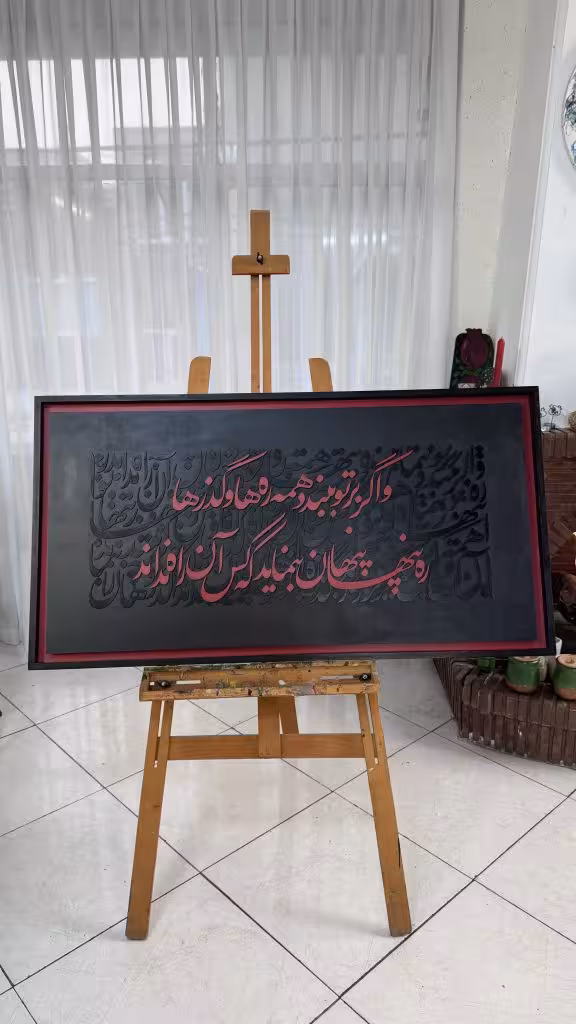 و اگر بر تو ببندد همه ره‌ها و گذرها
ره پنهان بنماید که کس آن راه نداند